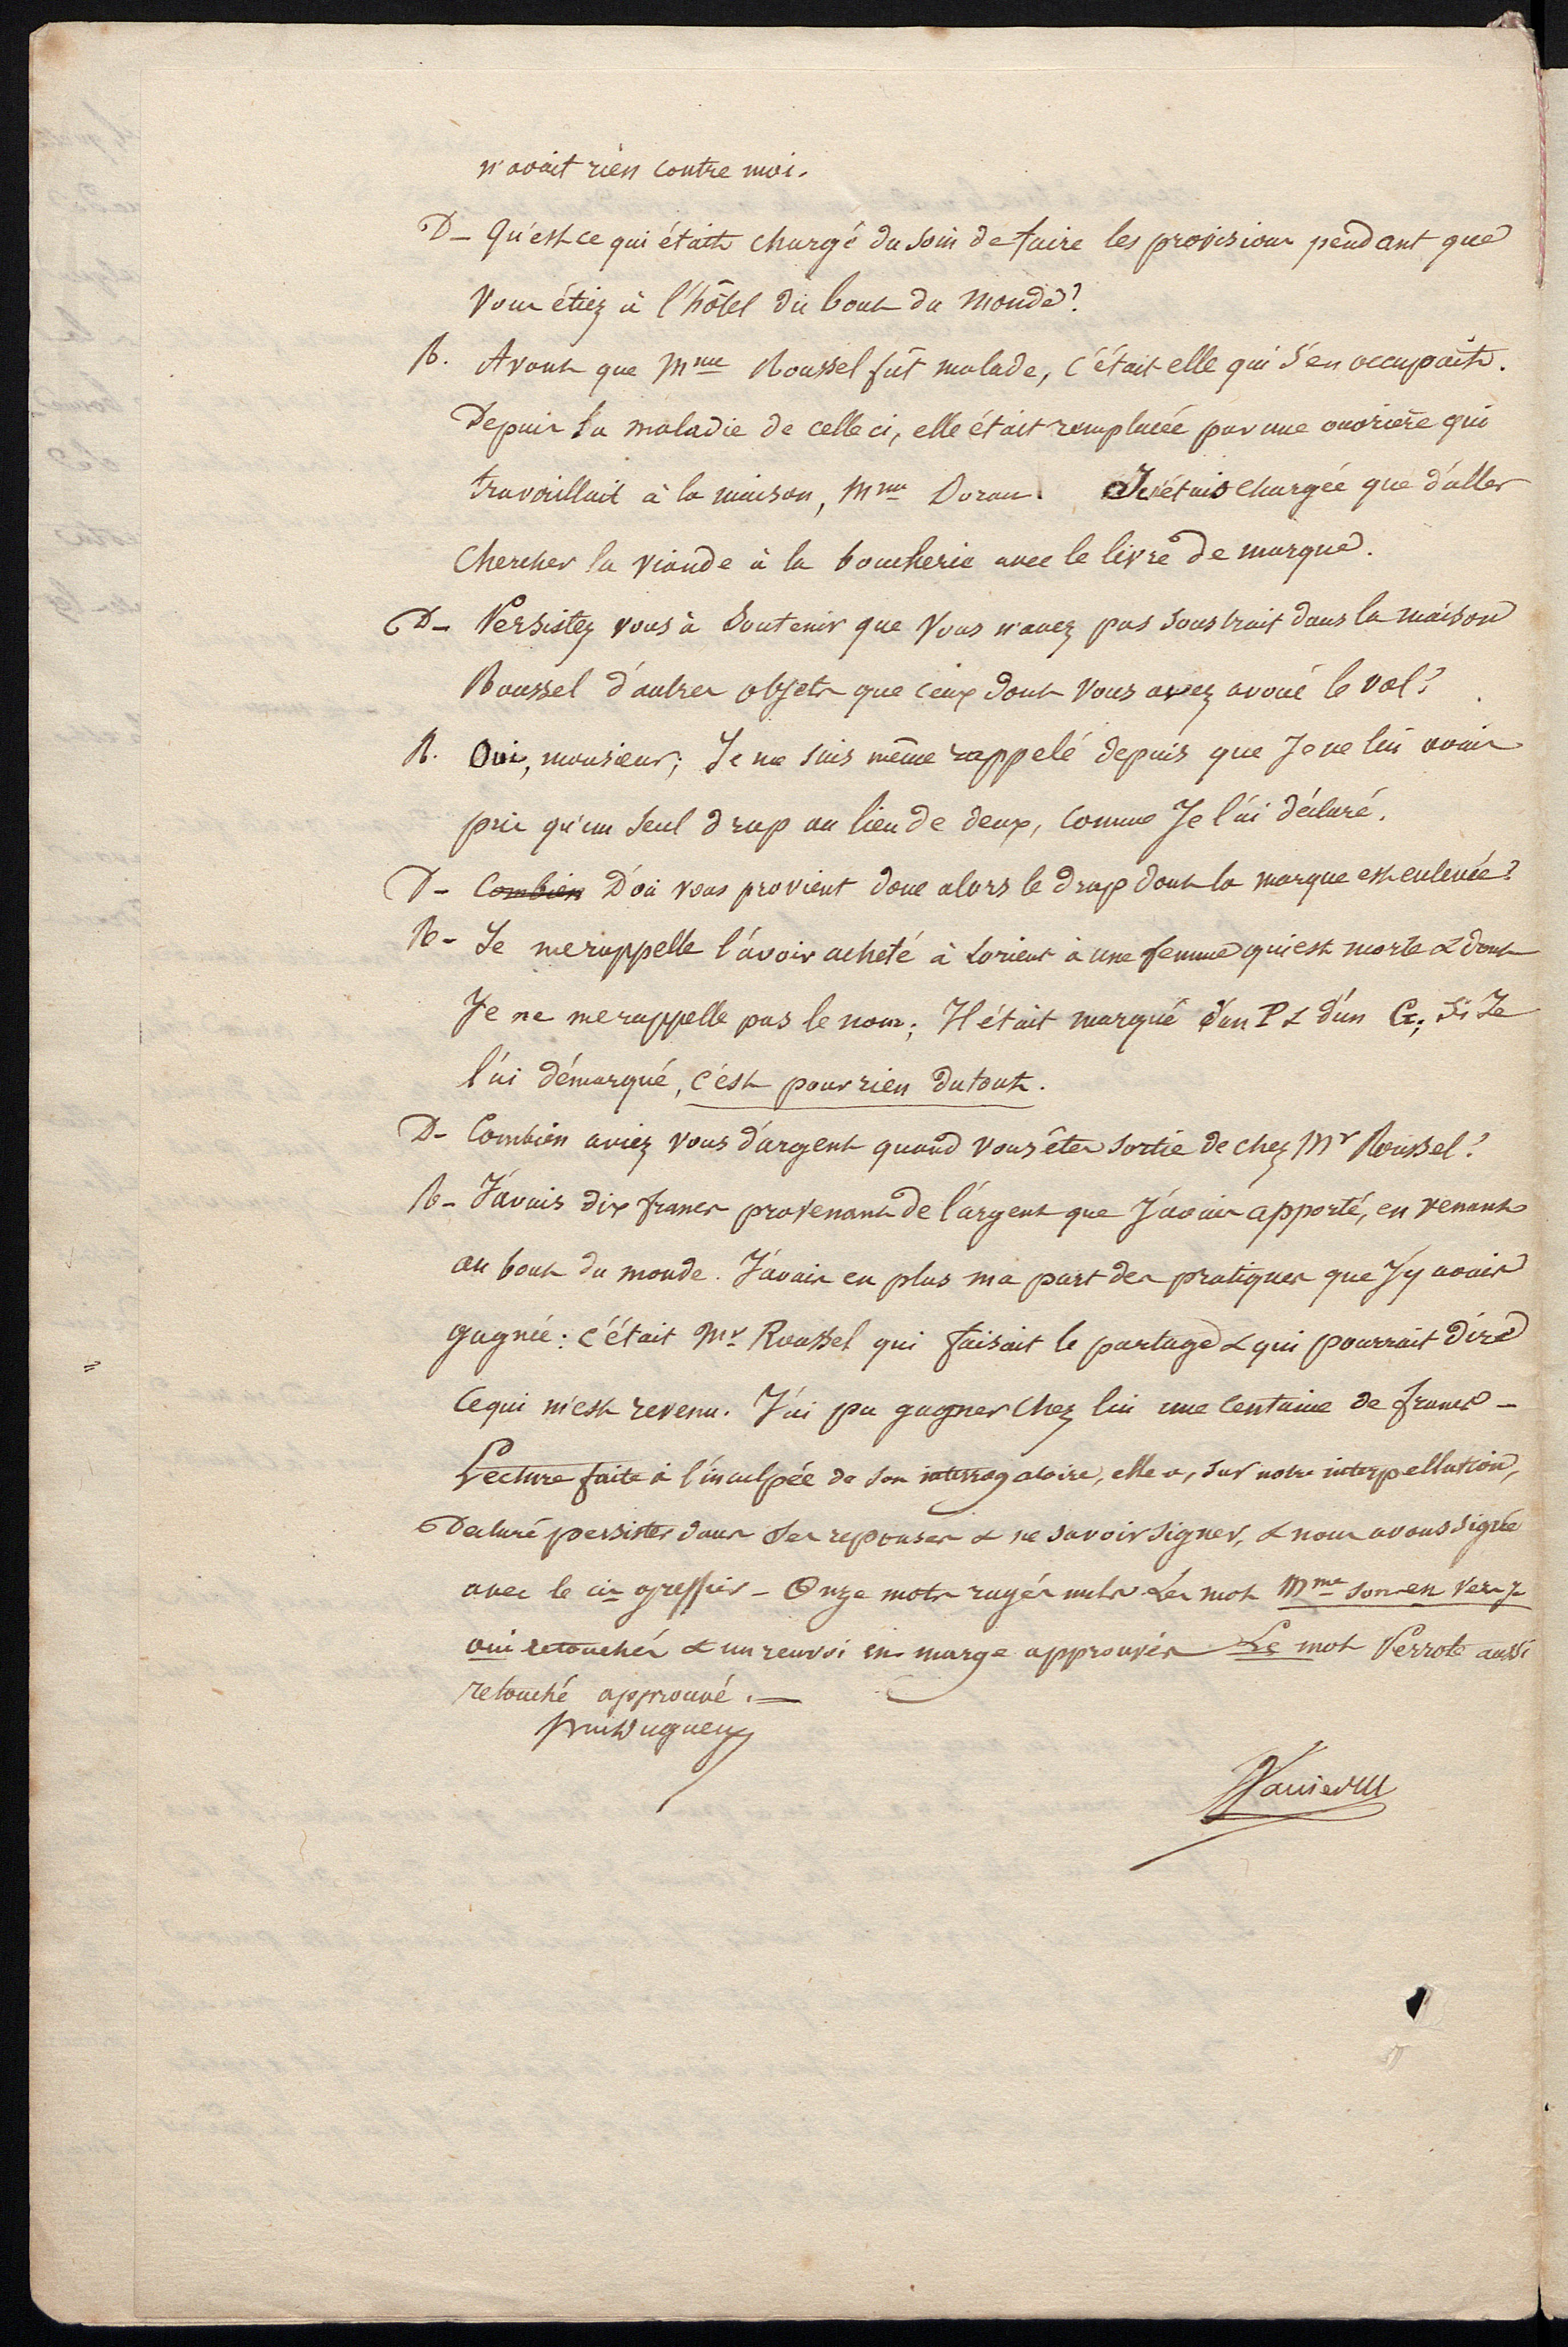 n'avait rien contre moi.
D - Qu'est-ce qui était chargé du soin de faire les provisions pendant que
vous étiez à l'hôtel du bout du monde?
R. Avant que Mme Roussel fût malade, c'était elle qui s'en occupait.
Depuis la maladie de celle ci, elle était remplacée par une ouvrière qui
travaillait à la maison, Mme Doran. Je n'étais chargée que d'aller
chercher la viande à la boucherie avec le livre de marque.
D - Persistez vous à soutenir que vous n'avez pas soustrait dans la maison
Roussel d'autres objets que ceux dont vous avez avoué le vol?
R. Oui, monsieur; Je me suis même rappelé depuis que Je ne lui avais
pris qu'un seul drap au lieu de deux, comme Je l'ai déclaré.
D - Combien D'où vous provient donc alors le drap dont la marque est enlevée?
R - Je me rappelle l'avoir acheté à Lorient à une femme qui est morte & dont
Je ne me rappelle pas le nom; Il était marqué d'un P & d'un G; si Je
l'ai démarqué, c'est pour rien du tout.
D - Combien aviez vous d'argent quand vous êtes sortie de chez Mr Roussel?
R - J'avais dix francs provenant de l'argent que J'avais apporté, en venant
au bout du monde. J'avais en plus ma part des pratiques que J'y avais
gagnée: c'était Mr Roussel qui faisait le partage & qui pourrait dire
ce qui m'est revenu. J'ai pu gagner chez lui une centaine de francs -
Lecture faite à l'inculpée de son interrogatoire, elle a, sur notre interpellation,
Déclaré persister dans ses reponses & ne savoir signer, & nous avons signé
avec le cis greffier - Onze mots rayés nuls Les mot Mme son en
oui retouchés & un renvoi en marge approuvés Le mot Perrote aussi
retouché approuvé. -